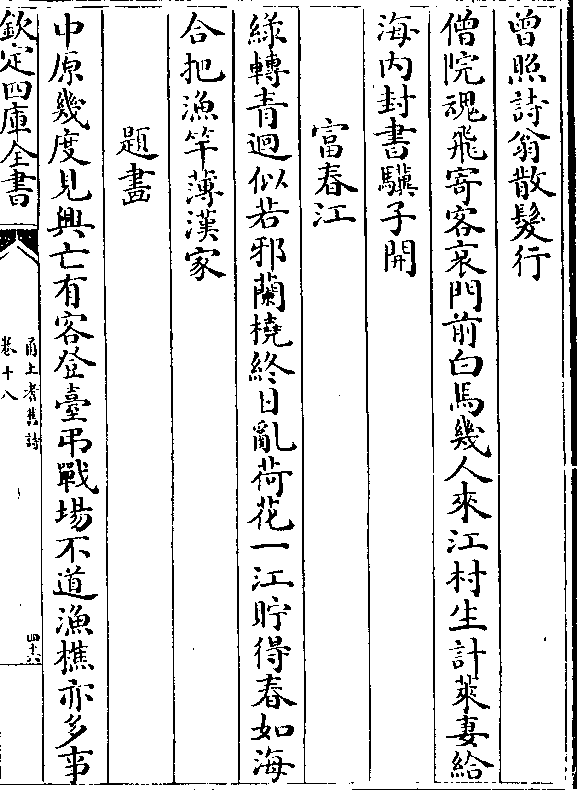 曾照詩翁散髮行
僧院魂飛寄客哀門前白馬幾人來江村生計萊妻給
海内封書驥子開
富春江
緑轉青迴似若邪蘭橈終日亂荷花一江貯得春如海
合把漁竿薄漢家
題畫
中原幾度見興亡有客登臺弔戰場不道漁樵亦多事
欽定四庫全書
甬上耆舊詩
卷十八
四十六